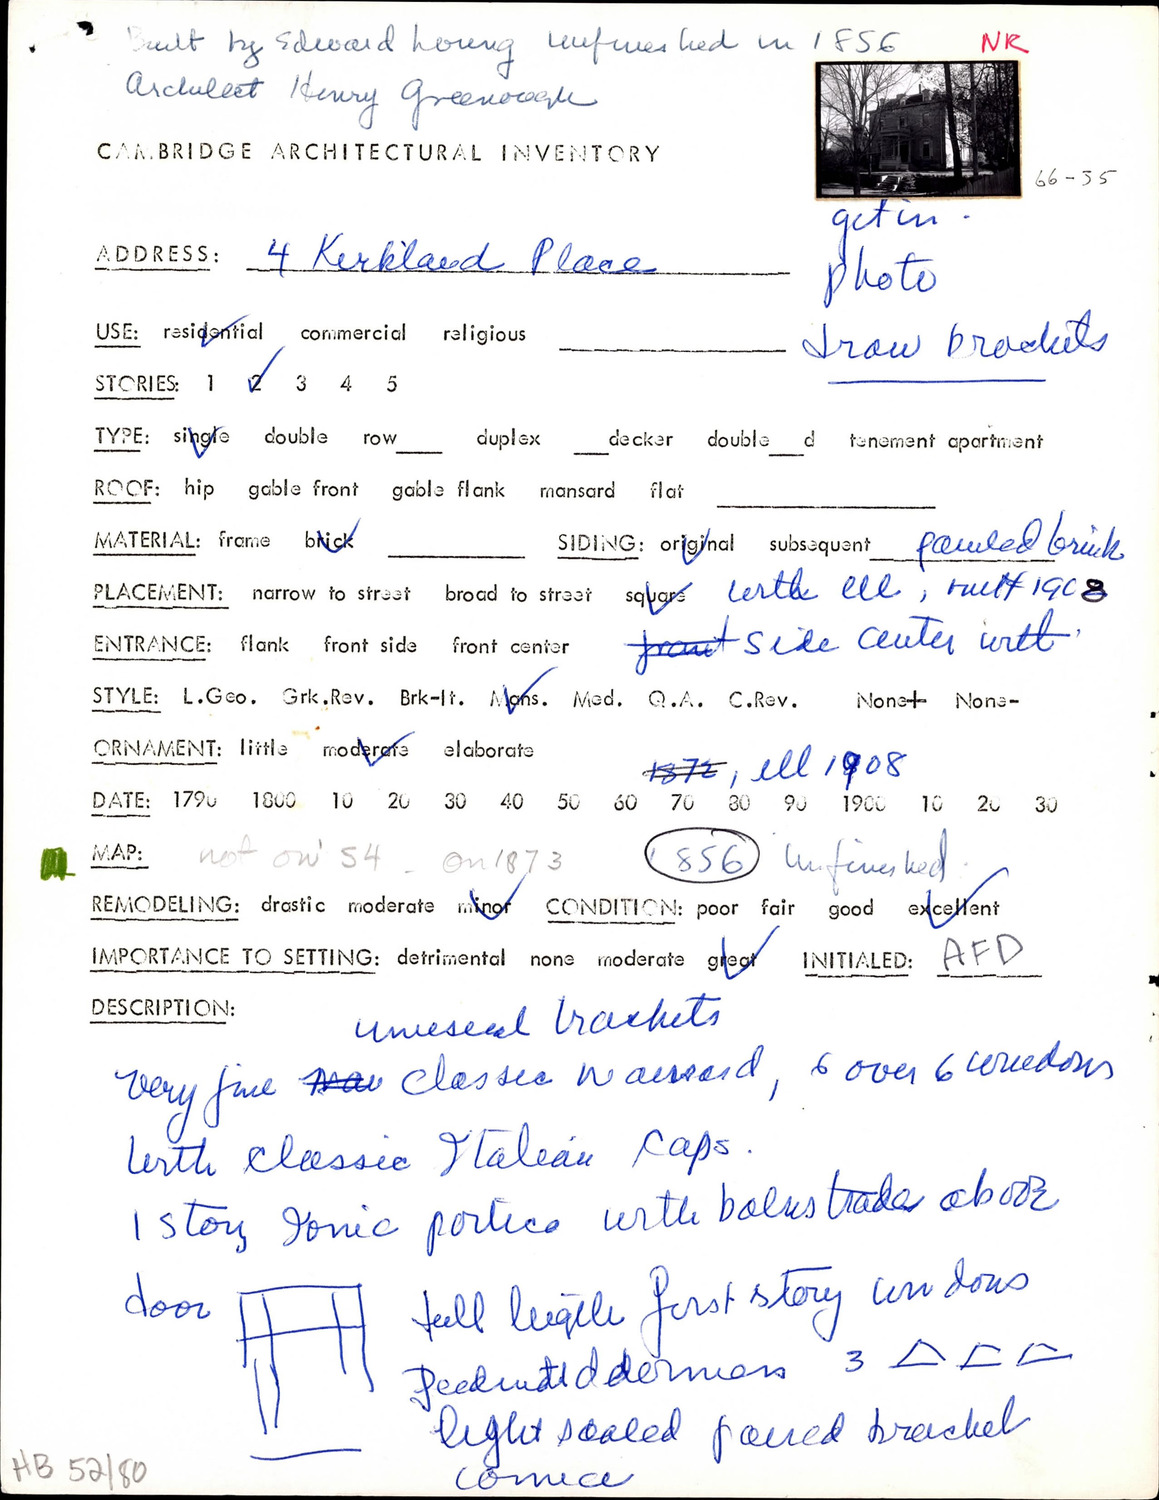 Built by Edward Loring unfinished in 1856 NR
Architect Henry Greenough
CAMBRIDGE ARCHITECTURAL INVENTORY
66-35
get in
photo
draw brackets
ADDRESS: 4 Kirkland Place
USE: residential commercial religious
STORIES: 1 2 3 4 5
TYPE: single double row___ duplex ___decker double___d tenement apartment
ROOF: hip gable front gable flank mansard flat
MATERIAL: frame brick SIDING: original subsequent painted brick
PLACEMENT: narrow to street broad to street square with ell, built 1908
ENTRANCE: flank front side front center front side center with
STYLE: L.Geo. Grk.Rev. Brk-It. Mans. Med. Q.A. C.Rev. None+ None-
ORNAMENT: little moderate elaborate
1872, ell 1908
DATE: 1790 1800 10 20 30 40 50 60 70 80 90 1900 10 20 30
MAP: not on 54 - on 1873 1856 unfinished
REMODELING: drastic moderate minor CONDITION: poor fair good excellent
IMPORTANCE TO SETTING: detrimental none moderate great INITIALED: AFD
DESCRIPTION:
unusual brackets
very fine classic mansard, 6 over 6 windows
with classic Italian caps.
1 story Ionic portico with balustrades above
door
full length first story windows
Pedimented dormers 3
light scaled paired bracket
cornice
HB 52/80